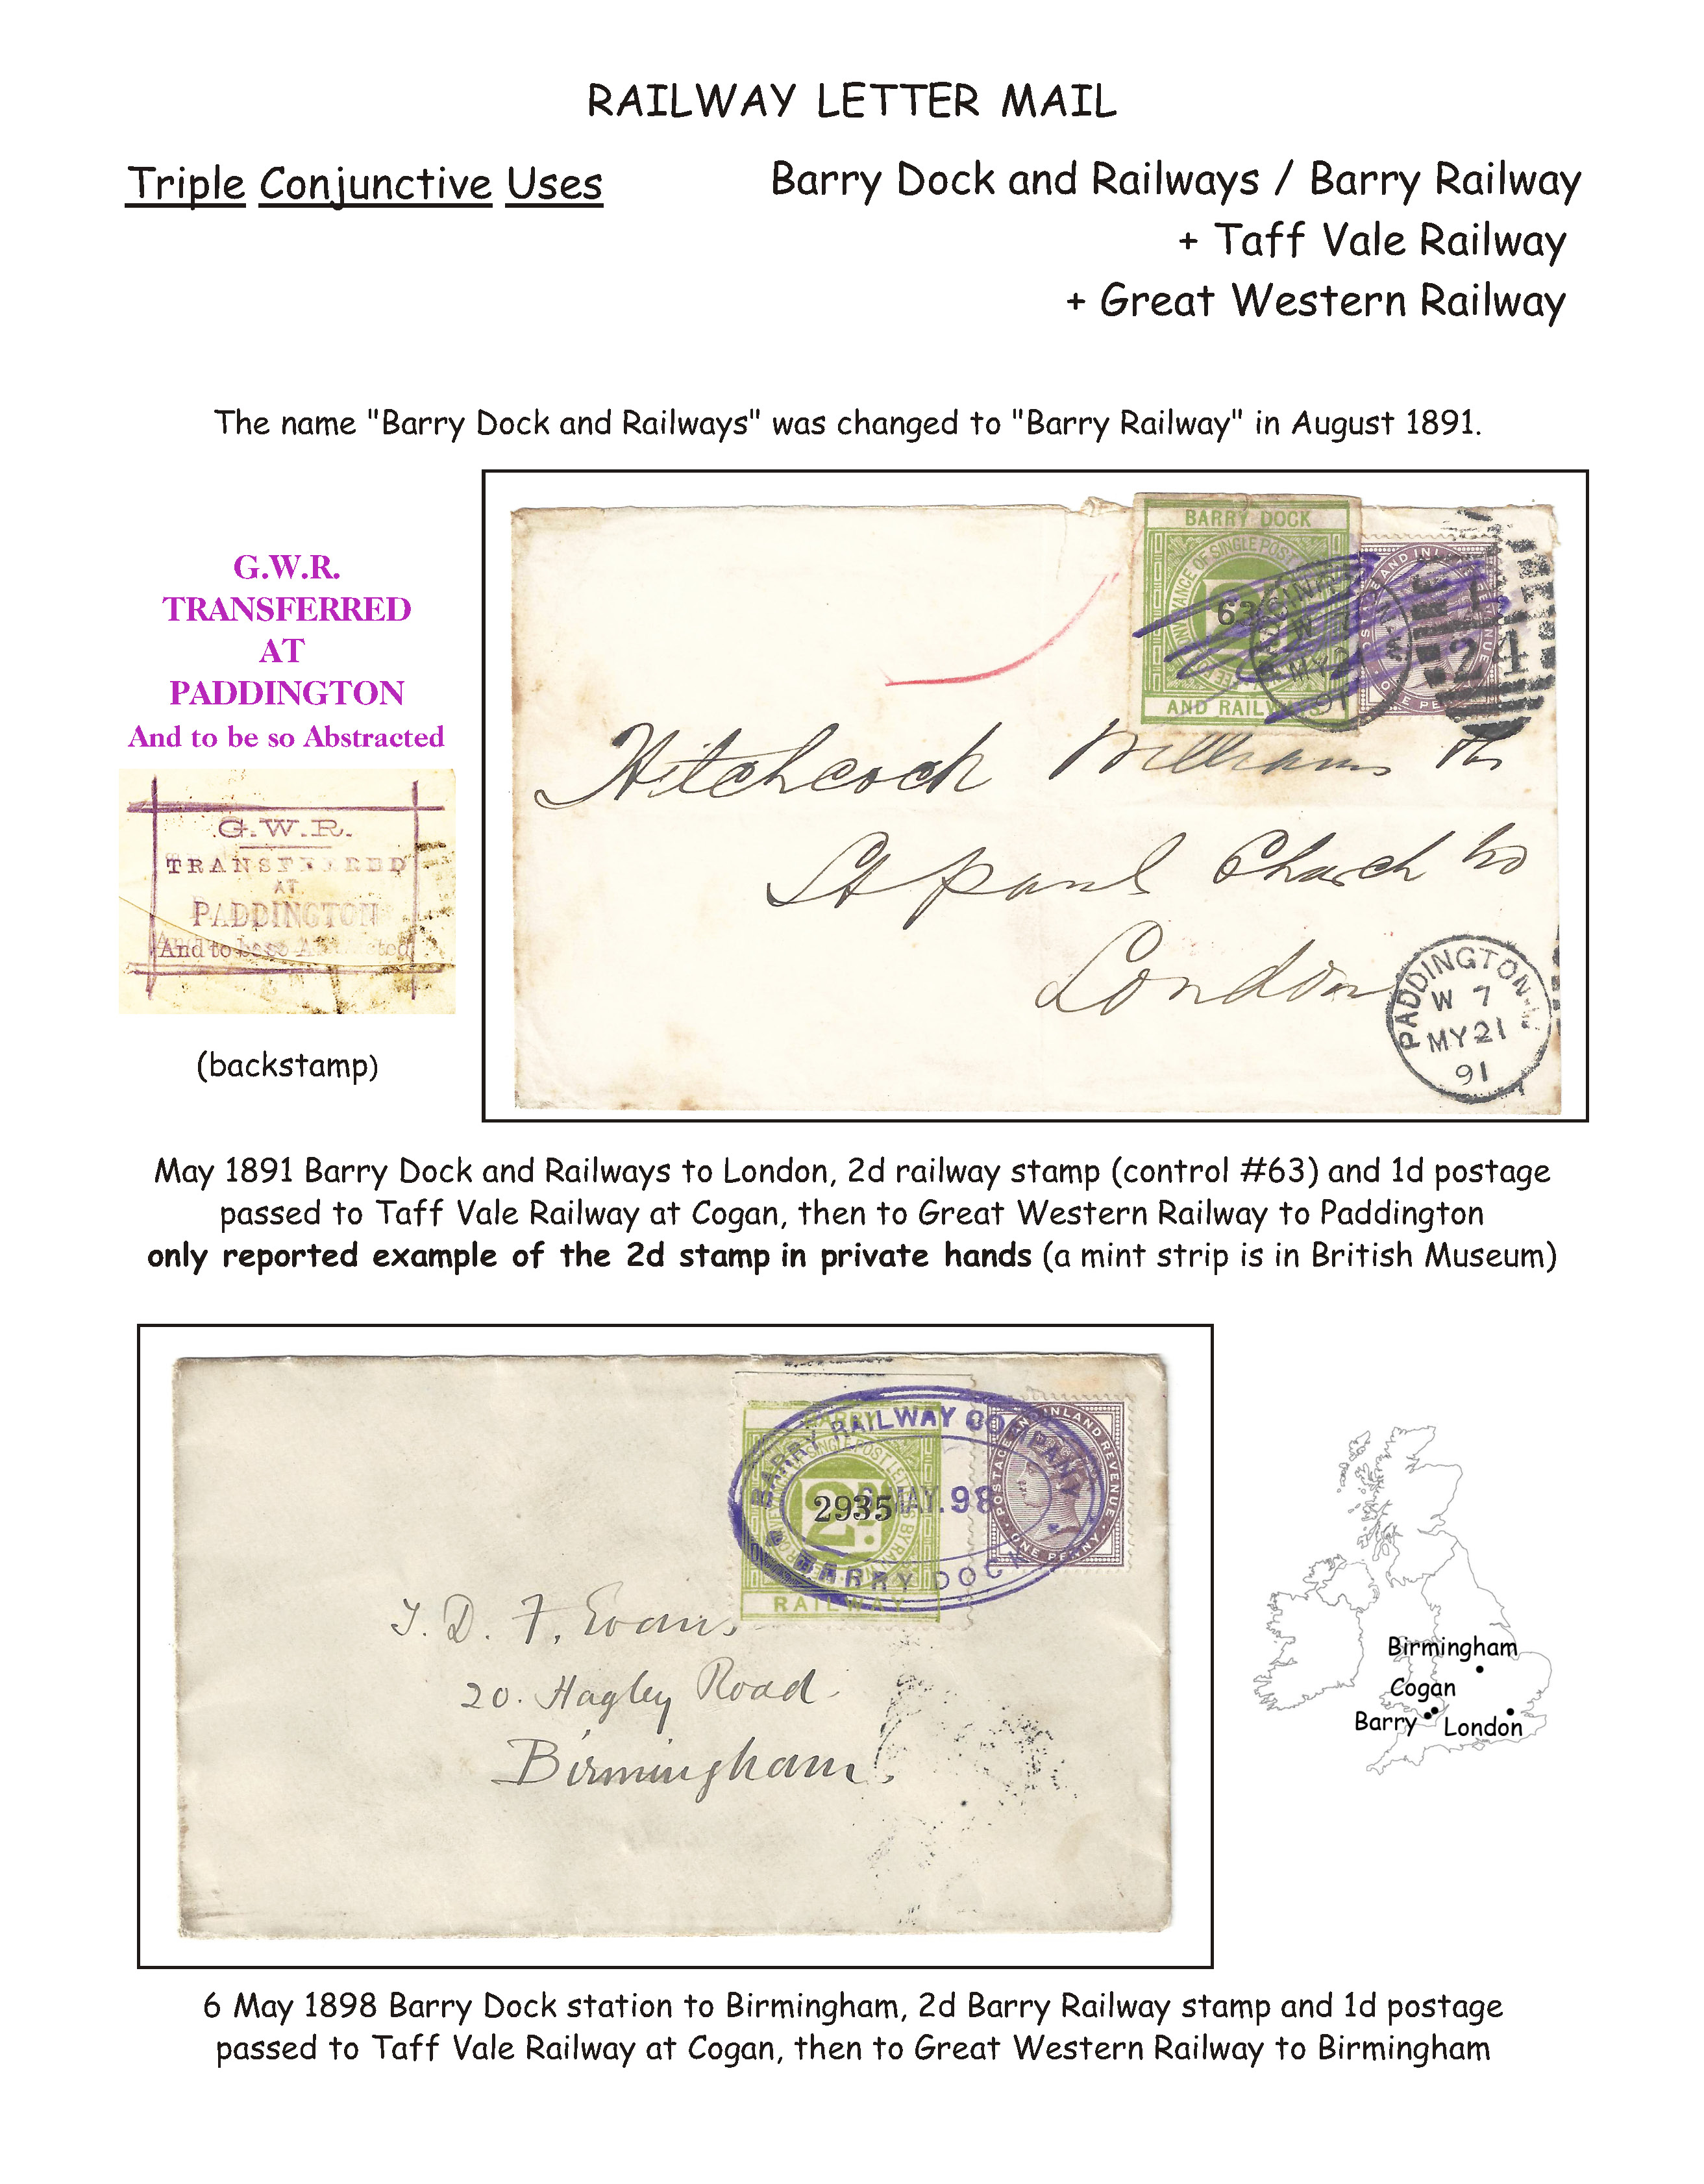 RAILWAY LETTER MAIL
Triple Conjunctive Uses
Barry Dock and Railways / Barry Railway
+ Taff Vale Railway
+ Great Western Railway
The name "Barry Dock and Railways" was changed to "Barry Railway" in August 1891.
G.W.R.
TRANSFERRED
AT
PADDINGTON
And to be so Abstracted
G.W.R.
TRANSFERRED
AT
PADDINGTON
And to be so
(backstamp)
BARRY DOCK
OF SINGLE POST
63
AND RAILWAYS
W 7
MY 21
91
24
Hitchcock Williams
St pauls Church
London
PADDINGTON
W 7
MY 21
91
May 1891 Barry Dock and Railways to London, 2d railway stamp (control #63) and 1d postage
passed to Taff Vale Railway at Cogan, then to Great Western Railway to Paddington
only reported example of the 2d stamp in private hands (a mint strip is in British Museum)
BARRY RAILWAY COMPANY
MAY.98
BARRY DOCK
BARRY
SINGLE POST LETTERS BY TRAIN
2935
RAILWAY
POSTAGE AND INLAND REVENUE
ONE PENNY
J. D. F. Evans
20. Hagley Road
Birmingham
Birmingham
Cogan
Barry
London
6 May 1898 Barry Dock station to Birmingham, 2d Barry Railway stamp and 1d postage
passed to Taff Vale Railway at Cogan, then to Great Western Railway to Birmingham